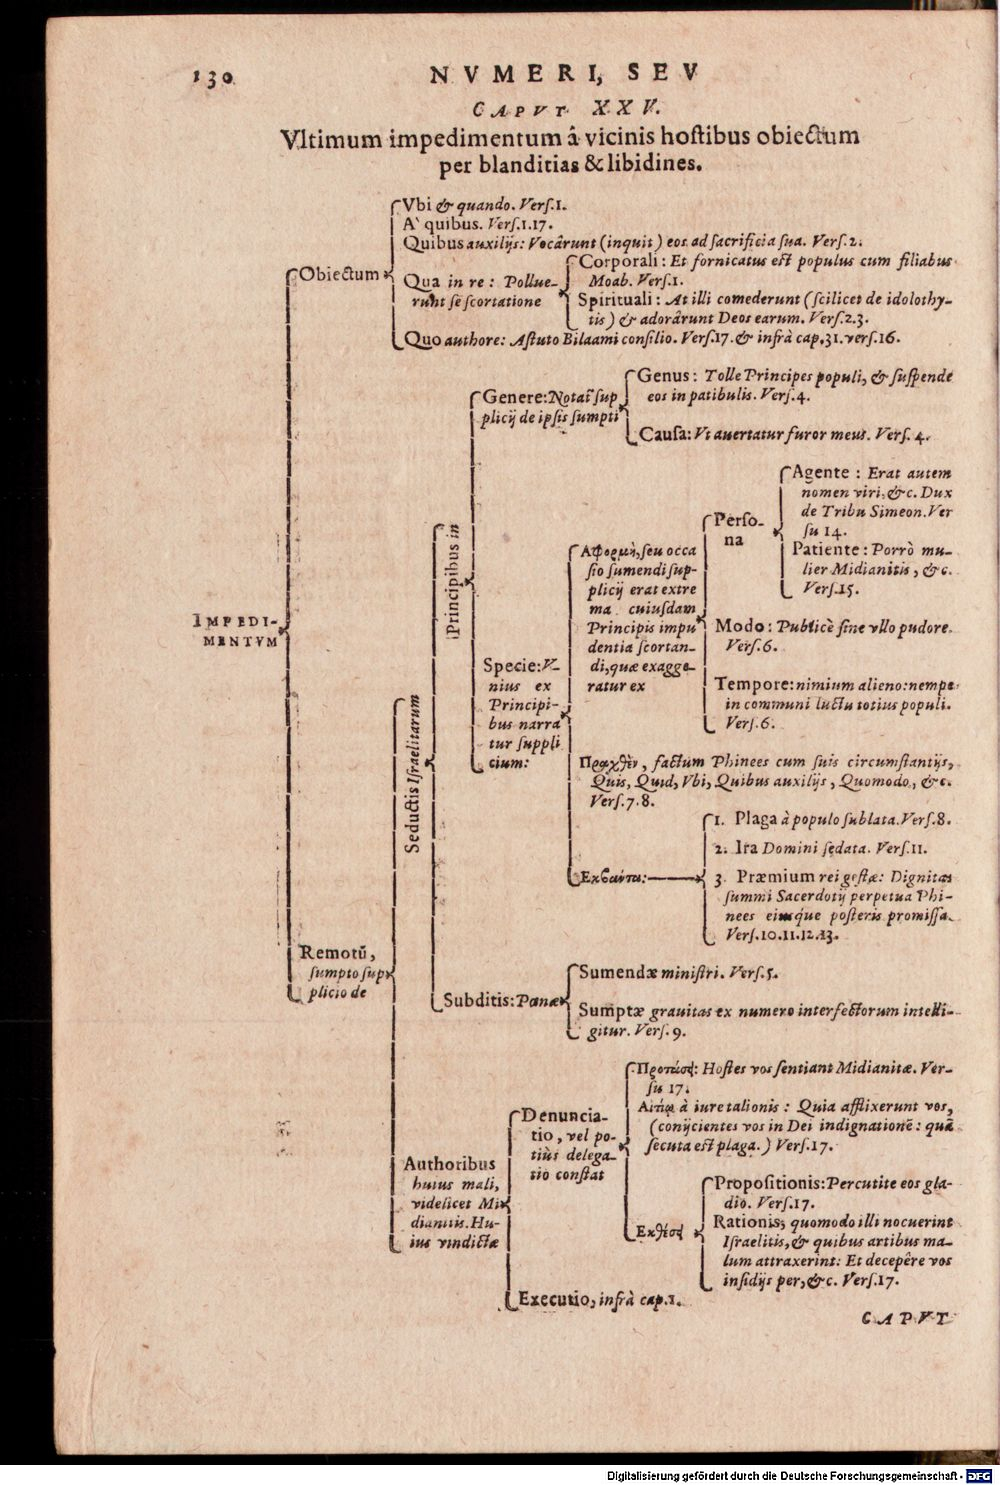 130
NVMERI, SEV
CAPVT XXV.
Vltimum impedimentum â vicinis hostibus obiectum
per blanditias & libidines.
IMPEDI-
MENTVM
Obiectum
Vbi & quando. Vers.1.
A' quibus. Vers.1.17.
Quibus auxilijs: Vocârunt (inquit) eos ad sacrificia sua. Vers.2.
Qua in re: Pollue-
runt se scortatione
Corporali: Et fornicatus est populus cum filiabus
Moab. Vers.1.
Spirituali: At illi comederunt (scilicet de idolothy-
tis) & adorârunt Deos earum. Vers.2.3.
Quo authore: Astuto Bilaami consilio. Vers.17. & infrà cap.31.vers.16.
Remotũ,
sumpto sup
plicio de
Seductis Israelitarum
Principibus in
Genere: Notat̃ sup
plicij de ipsis sumpti
Genus: Tolle Principes populi, & suspende
eos in patibulis. Vers.4.
Causa: Vt auertatur furor meus. Vers. 4.
Specie: V-
nius ex
Principi-
bus narra
tur suppli
cium:
Αφορμὴ, seu occa
sio sumendi sup-
plicij erat extre
ma cuiusdam
Principis impu
dentia scortan-
di, quæ exagge-
ratur ex
Perso-
na
Agente: Erat autem
nomen viri, &c. Dux
de Tribu Simeon. Ver
su 14.
Patiente: Porrò mu-
lier Midianitis, &c.
Vers.15.
Modo: Publicè sine vllo pudore.
Vers.6.
Tempore: nimium alieno: nempe
in communi luctu totius populi.
Vers.6.
Πραχθὲν, factum Phinees cum suis circumstantijs,
Quis, Quid, Vbi, Quibus auxilijs, Quomodo, &c.
Vers.7.8.
Εκβαίντα:
1. Plaga à populo sublata. Vers.8.
2. Ira Domini sedata. Vers.11.
3. Præmium rei gestæ: Dignitas
summi Sacerdotij perpetua Phi-
nees eiusque posteris promissa.
Vers.10.11.12.13.
Subditis: Pœnæ
Sumendæ ministri. Vers.5.
Sumptæ grauitas ex numero interfectorum intelli-
gitur. Vers. 9.
Authoribus
huius mali,
videlicet Mi
dianitis. Hu-
ius vindictæ
Denuncia-
tio, vel po-
tiùs delega-
tio constat
Προτάσς: Hostes vos sentiant Midianitæ. Ver-
su 17.
à iure talionis: Quia afflixerunt vos,
(conijcientes vos in Dei indignationẽ: quã
secuta est plaga.) Vers.17.
Εκθέσς
Propositionis: Percutite eos gla-
dio. Vers.17.
Rationis, quomodo illi nocuerint
Israelitis, & quibus artibus ma-
lum attraxerint: Et decepêre vos
insidijs per, &c. Vers.17.
Executio, infrà cap.1.
CAPVT
Digitalisierung gefördert durch die Deutsche Forschungsgemeinschaft - DFG